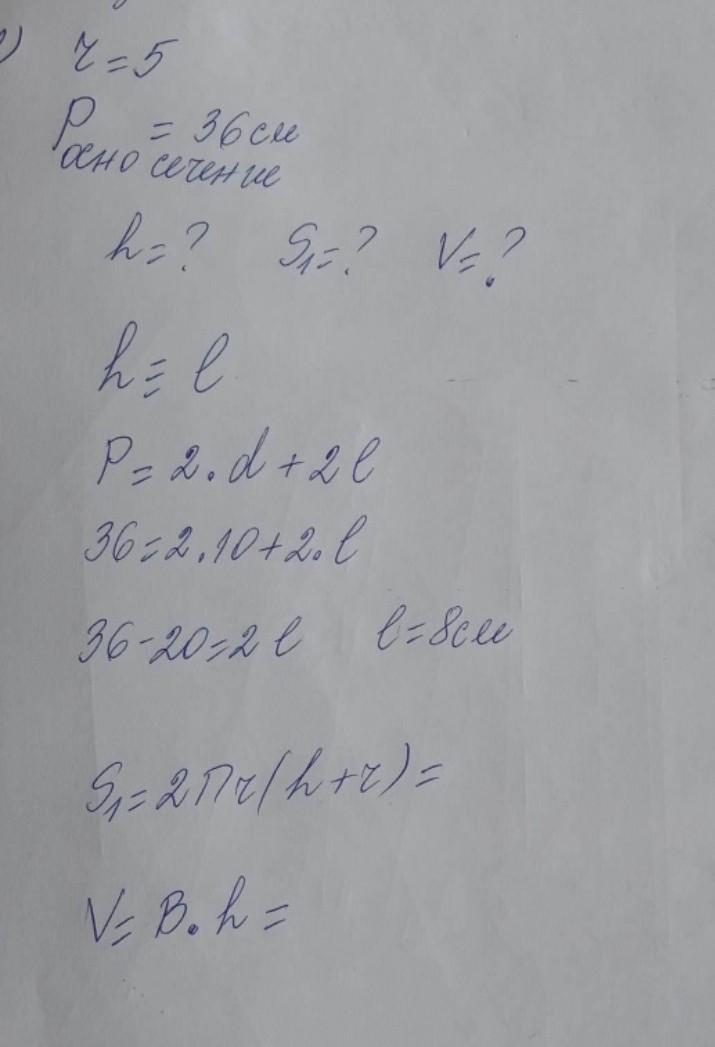 r=5
P = 36см
осно сечение
h=? S₁=? V=?
h=l
P=2.d+2l
36=2.10+2.l
36-20=2l l=8см
S₁=2πr(h+r)=
V=B.h=